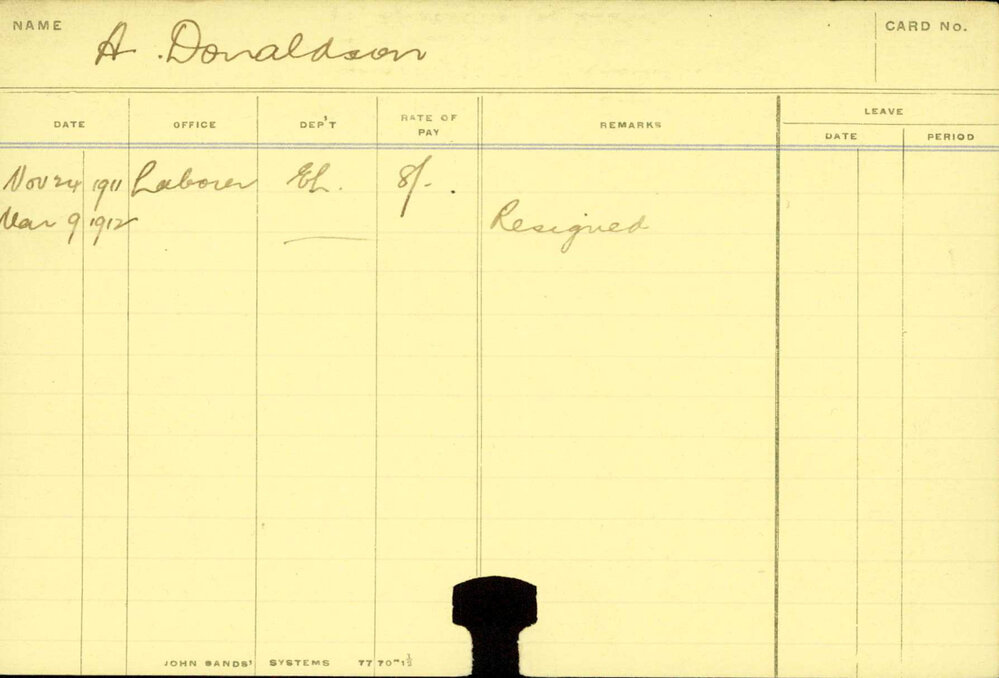 NAME A. Donaldson CARD No.
DATE OFFICE DEP'T RATE OF PAY REMARKS LEAVE
DATE PERIOD
Nov 24 1911 Laborer EL. 8/-.
Mar 9 1912 Resigned
JOHN SANDS' SYSTEMS 7770